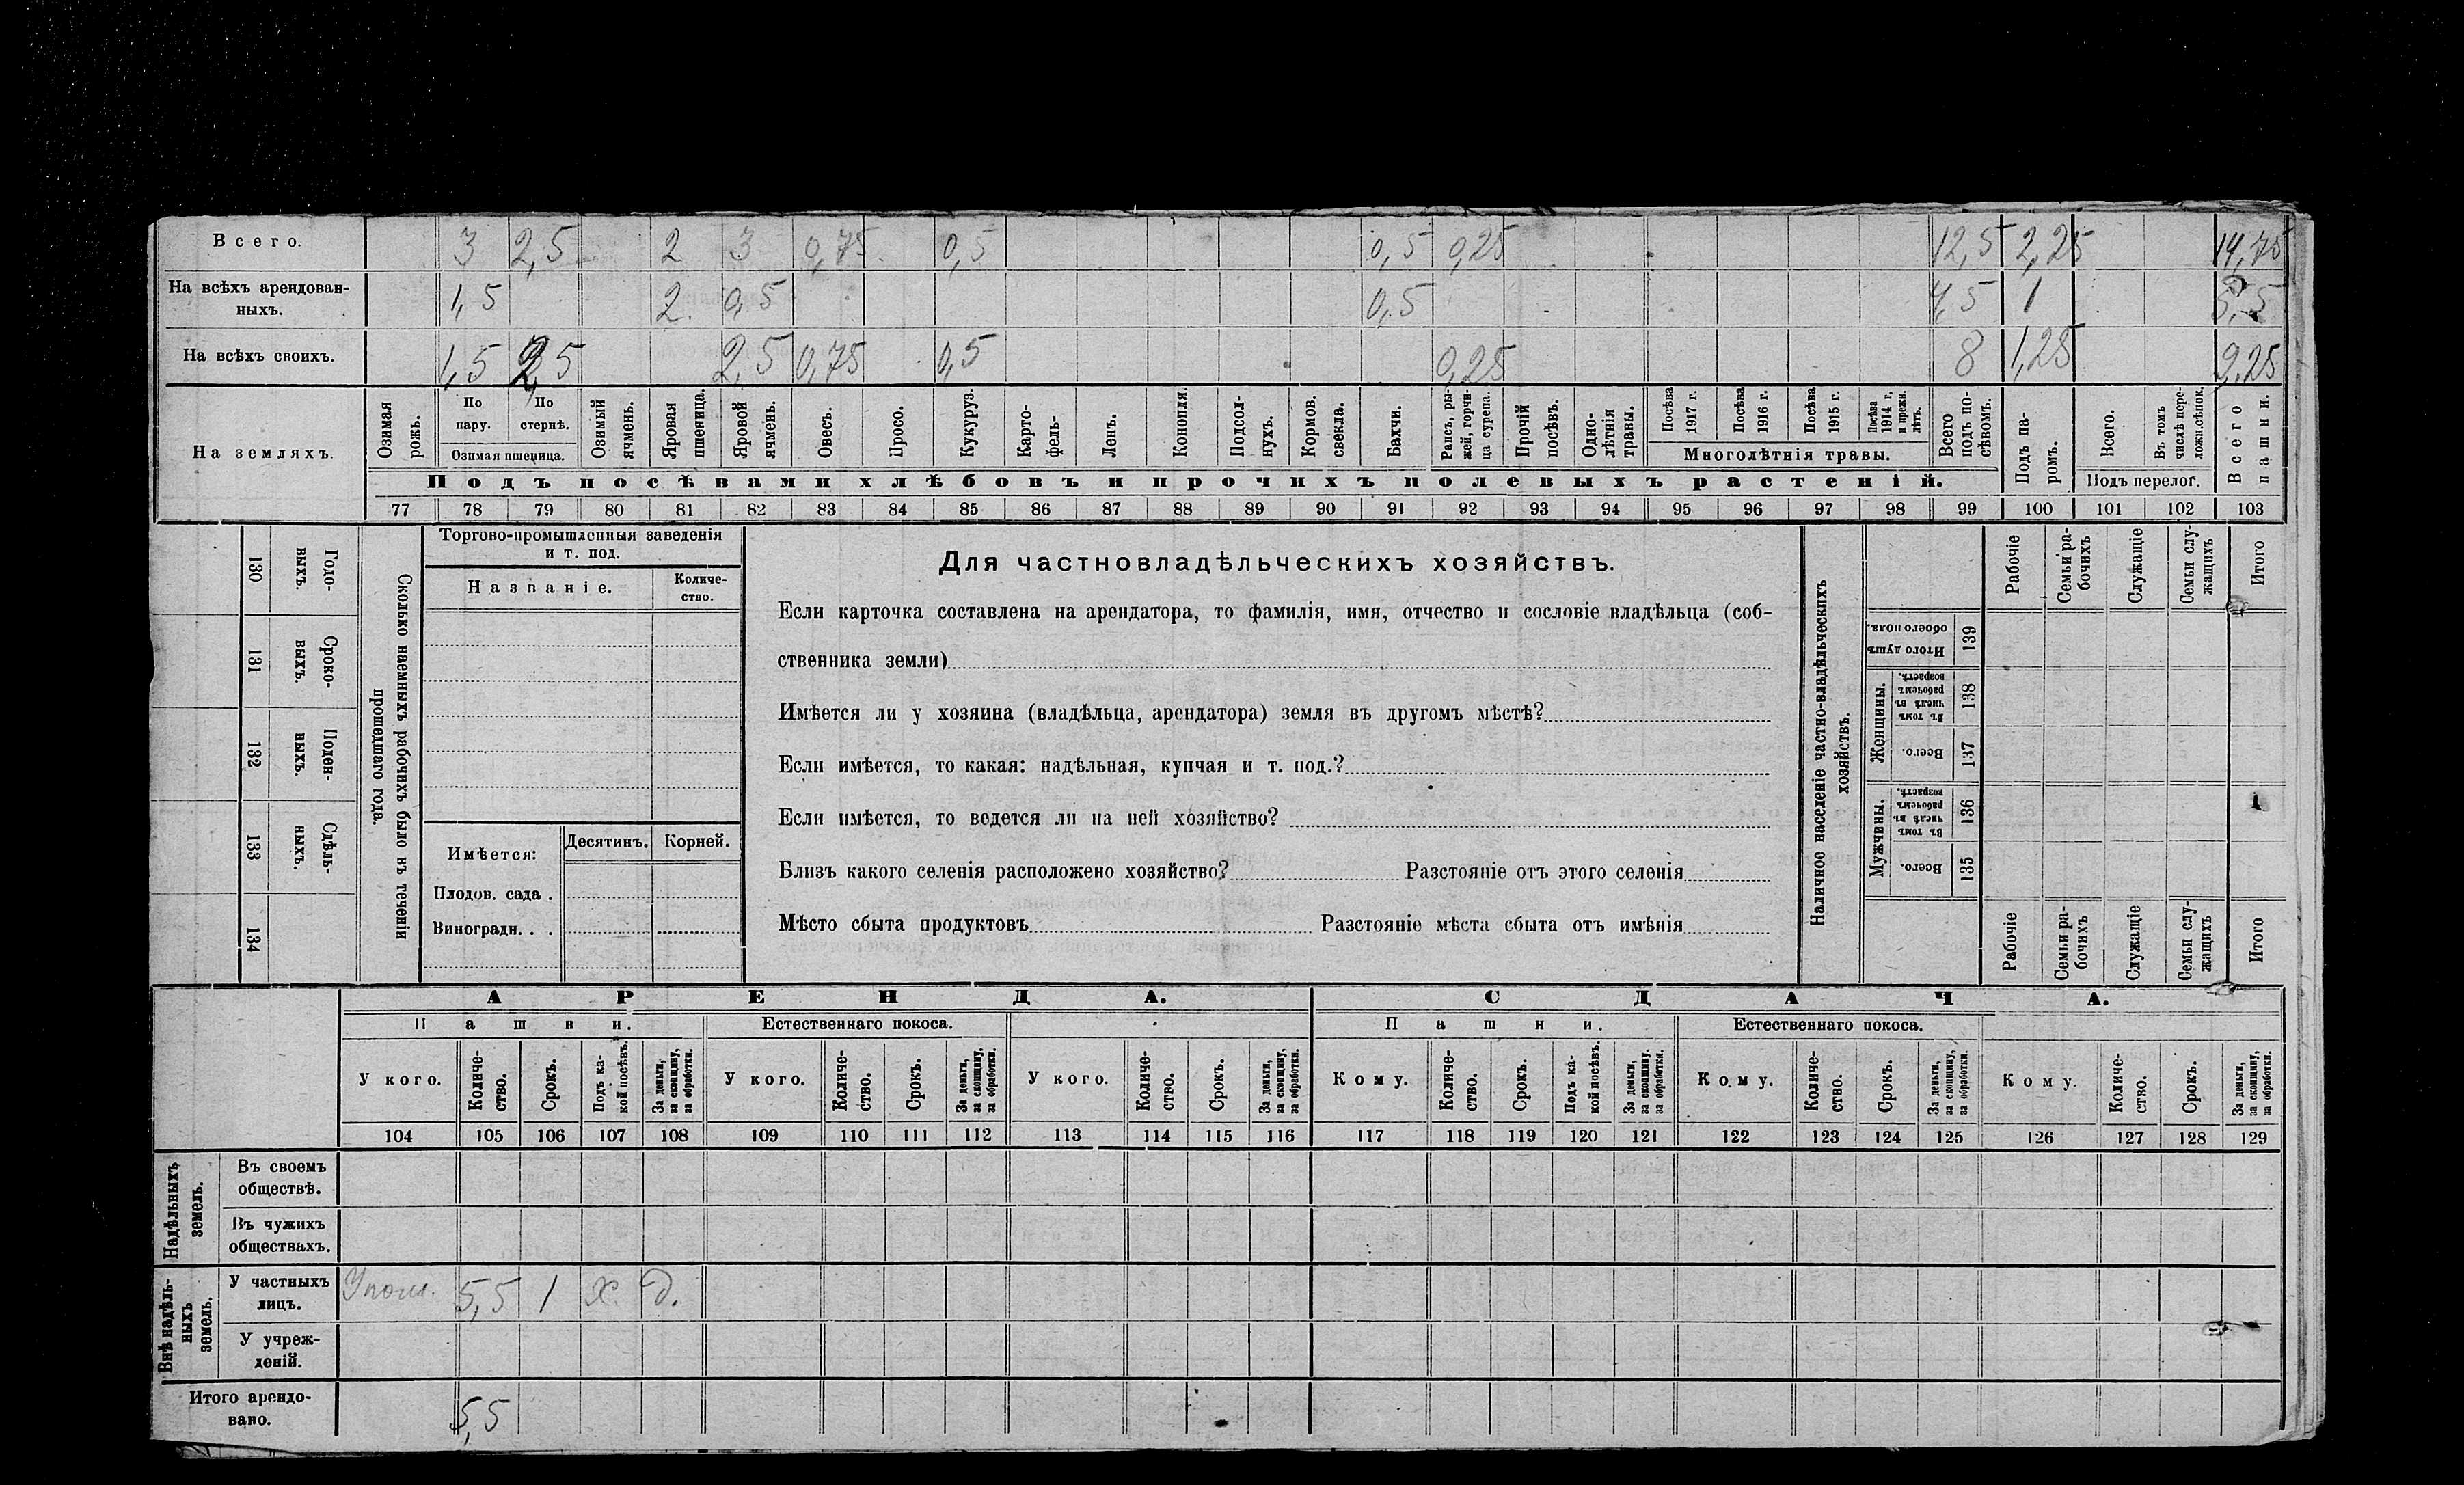 Всего. 3 2,5 2 3 0,75 0,5 0,5 0,25 12,5 2,25 14,75
На всѣхъ арендован- 1,5 2 0,5 0,5 4,5 1 5,5
ныхъ.
На всѣхъ своихъ. 1,5 2,5 2,5 0,75 0,5 0,25 8 1,25 9,25
На земляхъ.
Озимая рожь.
По пару.
По стернѣ.
Озимая пшеница.
Озимый ячмень.
Яровая пшеница.
Яровой ячмень.
Овесъ.
Просо.
Кукуруз.
Карто-фель-
Ленъ.
Конопля.
Подсол-нухъ.
Кормов. свекла.
Бахчи.
Рапсъ, ры-жей, горчи-ца сурепа.
Прочій посѣвъ.
Одно-лѣтнія травы.
Посѣва 1917 г.
Посѣва 1916 г.
Посѣва 1915 г.
Посѣва 1914 г. и прежн. лѣтъ.
Многолѣтнія травы.
Всего подъ по-сѣвомъ.
Подъ па-ромъ.
Всего.
Въ томъ числѣ пере-ложн.сѣнок.
Подъ перелог.
Всего пашни.
Подъ посѣвами хлѣбовъ и прочихъ полевыхъ растеній.
77 78 79 80 81 82 83 84 85 86 87 88 89 90 91 92 93 94 95 96 97 98 99 100 101 102 103
130 Годо-выхъ.
131 Сроко-выхъ.
132 Поден-ныхъ.
133 Сдѣль-ныхъ.
134
Сколько наемныхъ рабочихъ было въ теченіи
прошедшаго года.
Торгово-промышленныя заведенія
и т. под.
Названіе. Количе-ство.
Имѣется: Десятинъ. Корней.
Плодов. сада .
Виноградн. . .
Для частновладѣльческихъ хозяйствъ.
Если карточка составлена на арендатора, то фамилія, имя, отчество и сословіе владѣльца (соб-
ственника земли)
Имѣется ли у хозяина (владѣльца, арендатора) земля въ другомъ мѣстѣ?
Если имѣется, то какая: надѣльная, купчая и т. под.?
Если имѣется, то ведется ли на ней хозяйство?
Близъ какого селенія расположено хозяйство? Разстояніе отъ этого селенія
Мѣсто сбыта продуктовъ Разстояніе мѣста сбыта отъ имѣнія
Наличное населеніе частно-владѣльческихъ
хозяйствъ.
Рабочіе
Семьи ра-бочихъ
Служащіе
Семьи слу-жащихъ
Итого
Итого душъ обоего пола. 139
Женщины.
Въ томъ числѣ въ рабочемъ возрастѣ. 138
Всего. 137
Мужчины.
Въ томъ числѣ въ рабочемъ возрастѣ. 136
Всего. 135
Рабочіе
Семьи ра-бочихъ
Служащіе
Семьи слу-жащихъ
Итого
АРЕНДА. СДАЧА.
Пашни. Естественнаго покоса. Пашни. Естественнаго покоса.
У кого. Количе-ство. Срокъ. Подъ ка-кой посѣвъ. За деньги, за скопщину, за обработки.
У кого. Количе-ство. Срокъ. За деньги, за скопщину, за обработки.
У кого. Количе-ство. Срокъ. За деньги, за скопщину, за обработки.
Кому. Количе-ство. Срокъ. Подъ ка-кой посѣвъ. За деньги, за скопщину. за обработки.
Кому. Количе-ство. Срокъ. За деньги, за скопщину, за обработки.
Кому. Количе-ство. Срокъ. За деньги, за скопщину, за обработки.
104 105 106 107 108 109 110 111 112 113 114 115 116 117 118 119 120 121 122 123 124 125 126 127 128 129
Надѣльныхъ земель.
Въ своемъ
обществѣ.
Въ чужихъ
обществахъ.
Внѣ надѣль-ныхъ земель.
У частныхъ 5,5 1 х. д.
лицъ.
У учреж-
деній.
Итого арендо- 5,5
вано.